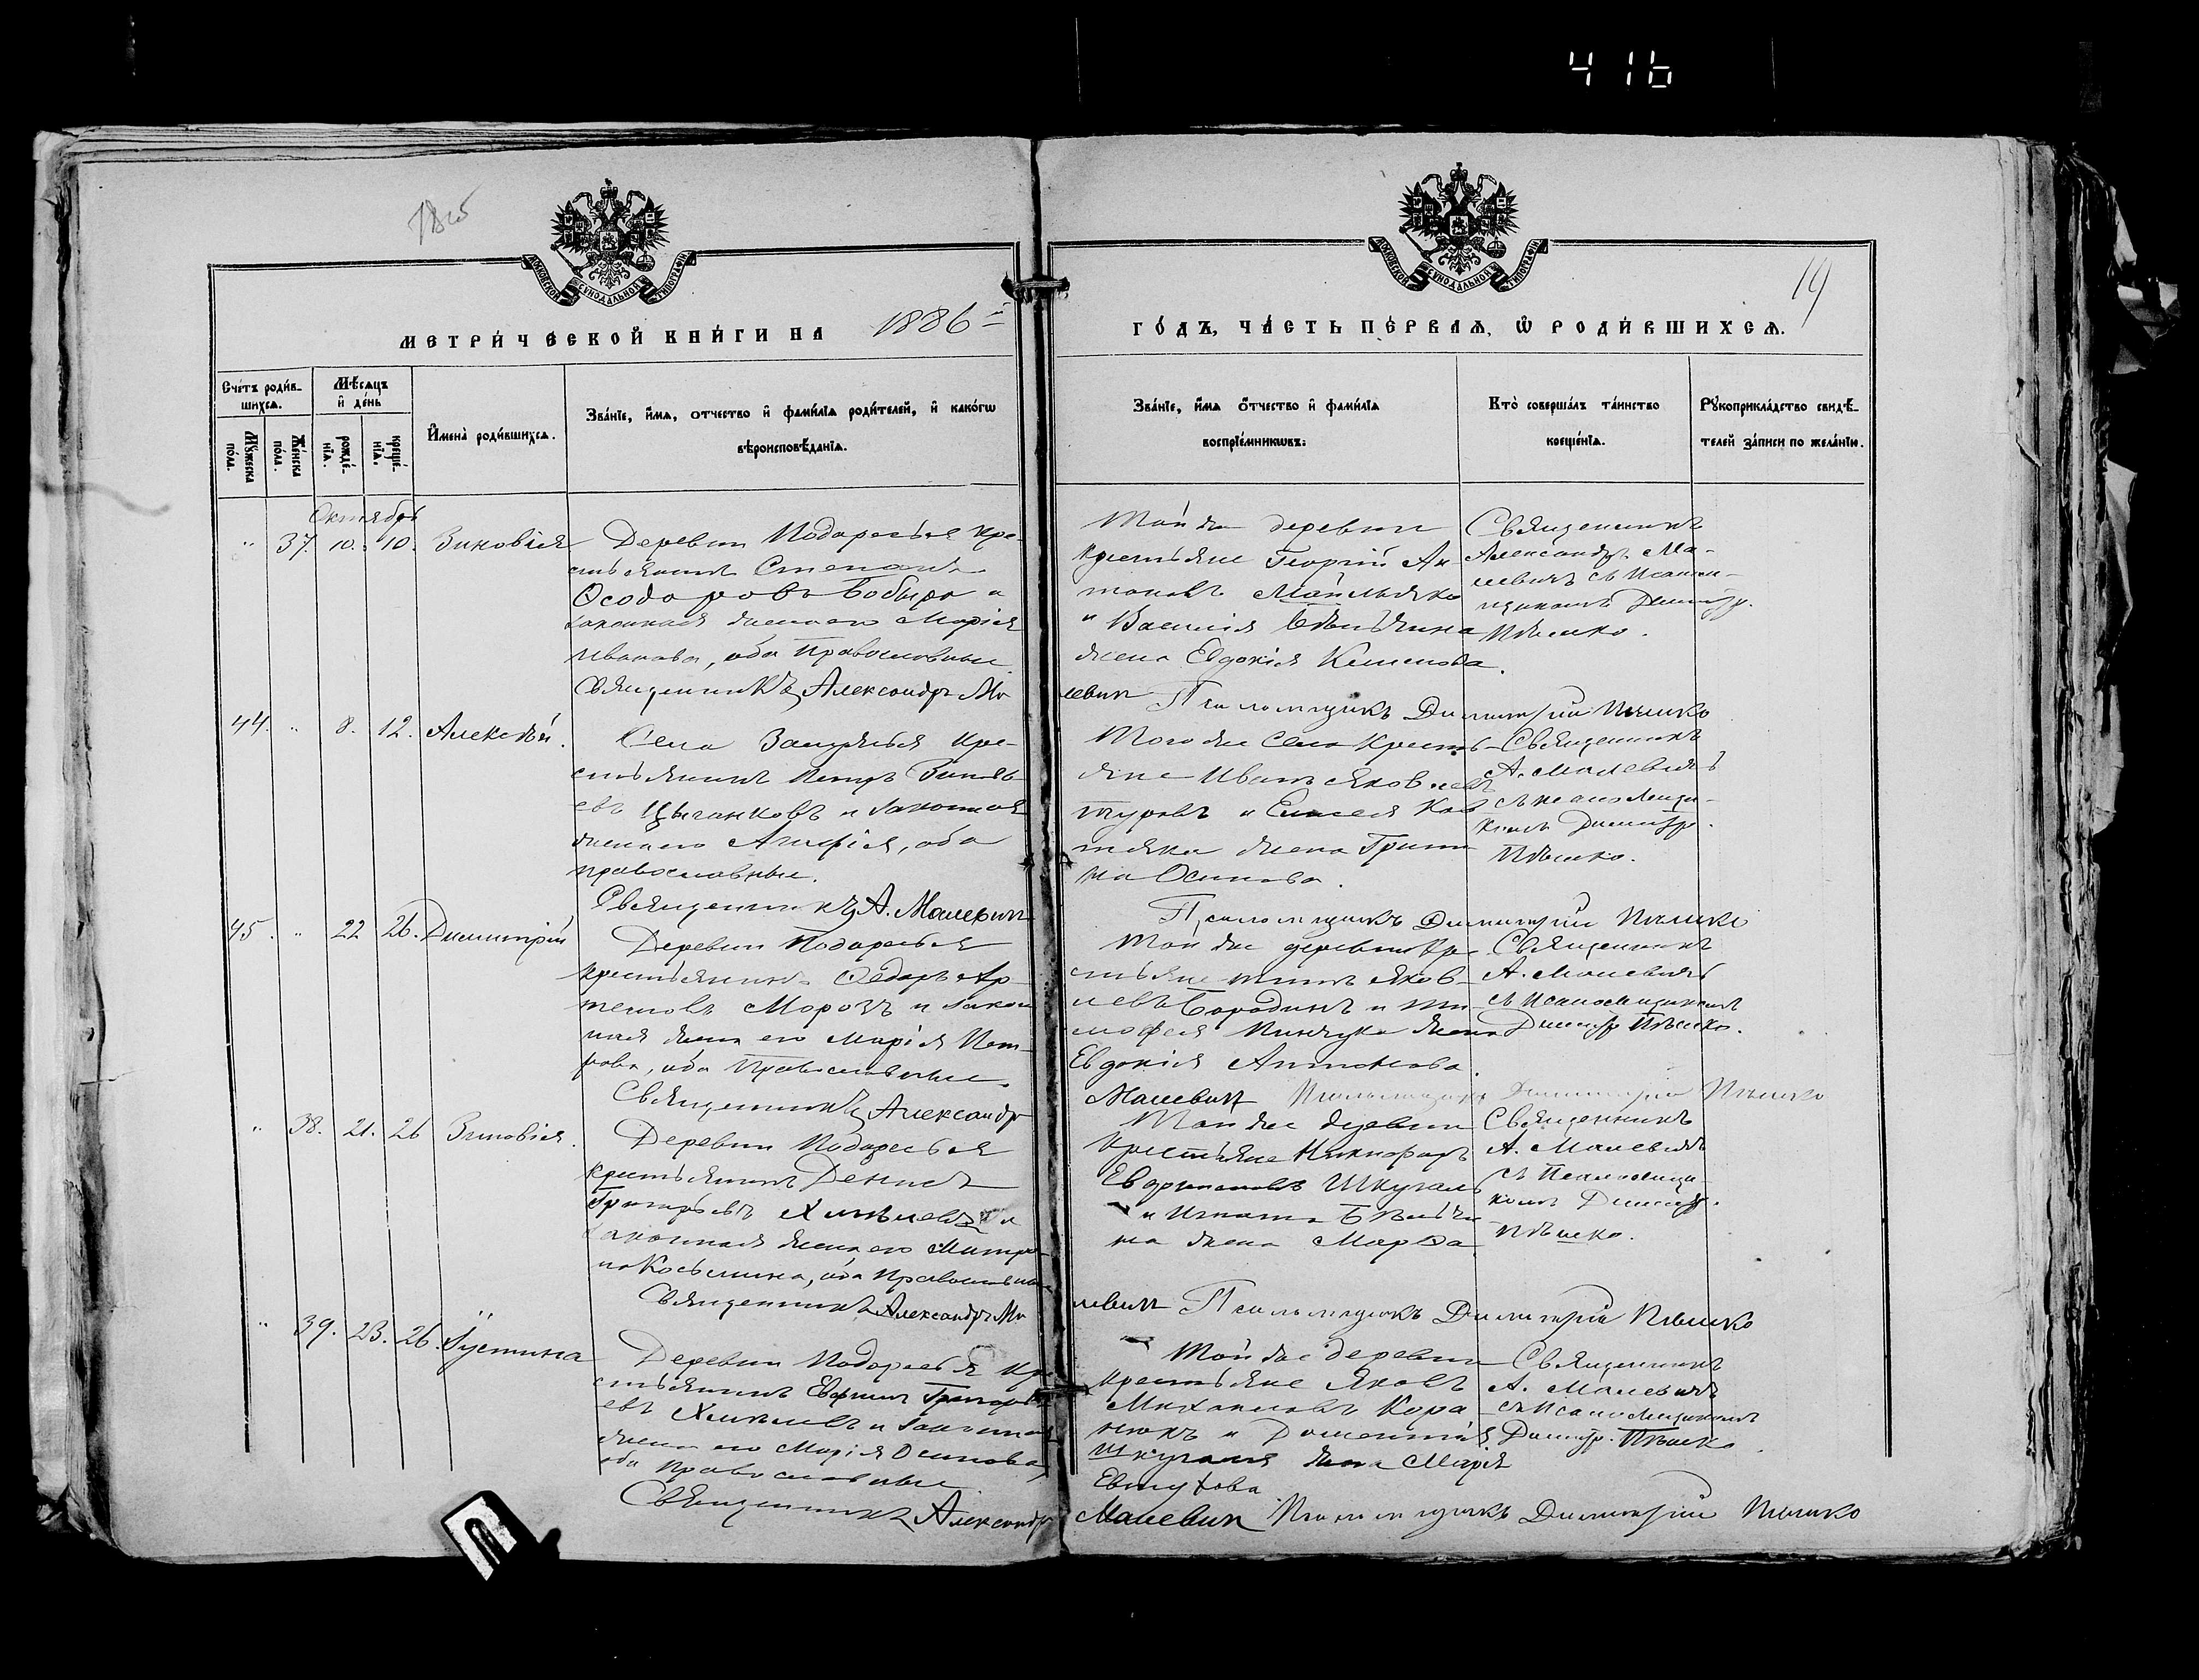 416
1886
19
МОСКОВСКОЙ СѴНОДАЛЬНОЙ ТИПОГРАФІИ
МОСКОВСКОЙ СѴНОДАЛЬНОЙ ТИПОГРАФІИ
МЕТРИ́ЧЕСКОЙ КНИ́ГИ НА
ГО́ДЪ, ЧА́СТЬ ПЕ́РВАѦ, Ѡ҆ РОДИ́ВШИХСѦ.
Сче́тъ роди́в-
шихсѧ.
Мѣ́сѧцъ
и҆ де́нь
Мꙋ́жеска
по́ла.
Же́нска
по́ла.
рожде́-
нїѧ.
креще́-
нїѧ.
И҆мена̀ роди́вшихсѧ.
Зва́нїе, и҆́мѧ, ѻ҆́тчество и҆ фами́лїѧ роди́телей, и҆ како́гѡ
вѣроисповѣ́данїѧ.
Зва́нїе, и҆́мѧ ѻ҆́тчество и҆ фами́лїѧ
воспрїе́мникѡвъ.
Кто̀ соверша́лъ та́инство
креще́нїѧ.
Рꙋкоприкла́дство свидѣ́-
телей за́писи по жела́нїю.
Октябрь
" 37. 10. 10. Зиновія
Деревни Подоресья кре-
стьянинъ Степанъ
Ѳеодоровъ Бобырь и
законная жена его Марія
Иванова, оба Православные
Священникъ Александръ Ма
Той же деревни
крестьяне Георгій Ан-
тоновъ
и Василія
жена Евдокія
левич Псаломщикъ Димитрій Пѣшко
Священникъ
Александръ Ма-
левичъ съ Псалом-
щикомъ Димитр.
Пѣшко.
44. " 8. 12. Алексѣй.
Села кре-
стьянинъ Петръ Зиновь
евъ Цыганковъ и законная
жена его , оба
православные.
Священникъ А. Малевич
Того же села кресть-
яне Иванъ Яковлевъ
и Елисея
жена
на Осипова.
Псаломщикъ Димитрій Пѣшко
Священникъ
А. Малевичъ
съ псаломщи-
комъ Димитр.
Пѣшко.
45. " 22 26. Димитрій
Деревни Подоресья
крестьянинъ Ѳедоръ Ар-
темовъ Морозъ и закон
ная жена его Марія Пет-
рова, оба Православные.
Священникъ Александр
Той же деревни кре-
стьяне Титъ Яков-
левъ Бородинъ и Ти-
мофея Пинчука жена
Евдокія Антонова.
Малевич Псаломщикъ Димитрій Пѣшко
Священникъ
А. Малевичъ
съ Псаломщикомъ
Димитр. Пѣшко.
" 38. 21. 26 Зиновія.
Деревни Подоресья
крестьянинъ Денисъ
Григорьевъ Хмѣлевъ и
законная жена его Матро-
на Косьмина, оба Православные
Священникъ Александръ Ма
Той же деревни
крестьяне Никифоръ
Шкугаль
и Игната
на жена Марѳа
левич Псаломщикъ Димитрій Пѣшко
Священникъ
А. Малевичъ
съ Псаломщи-
комъ Димитр.
Пѣшко.
" 39. 23. 26. Іустина
Деревни Подоресья кре
стьянинъ Ефимъ Григорь
евъ Хмѣлевъ и законная
жена его Марія Осипова,
оба Православные
Священникъ Александръ
Той же деревни
крестьяне Яковъ
Михаиловъ Кора-
нюкъ и Дометія
Шкугаля жена Марія
Евтухова
Малевич Псаломщикъ Димитрій Пѣшко
Священникъ
А. Малевичъ
съ Псаломщикомъ
Димитр. Пѣшко.